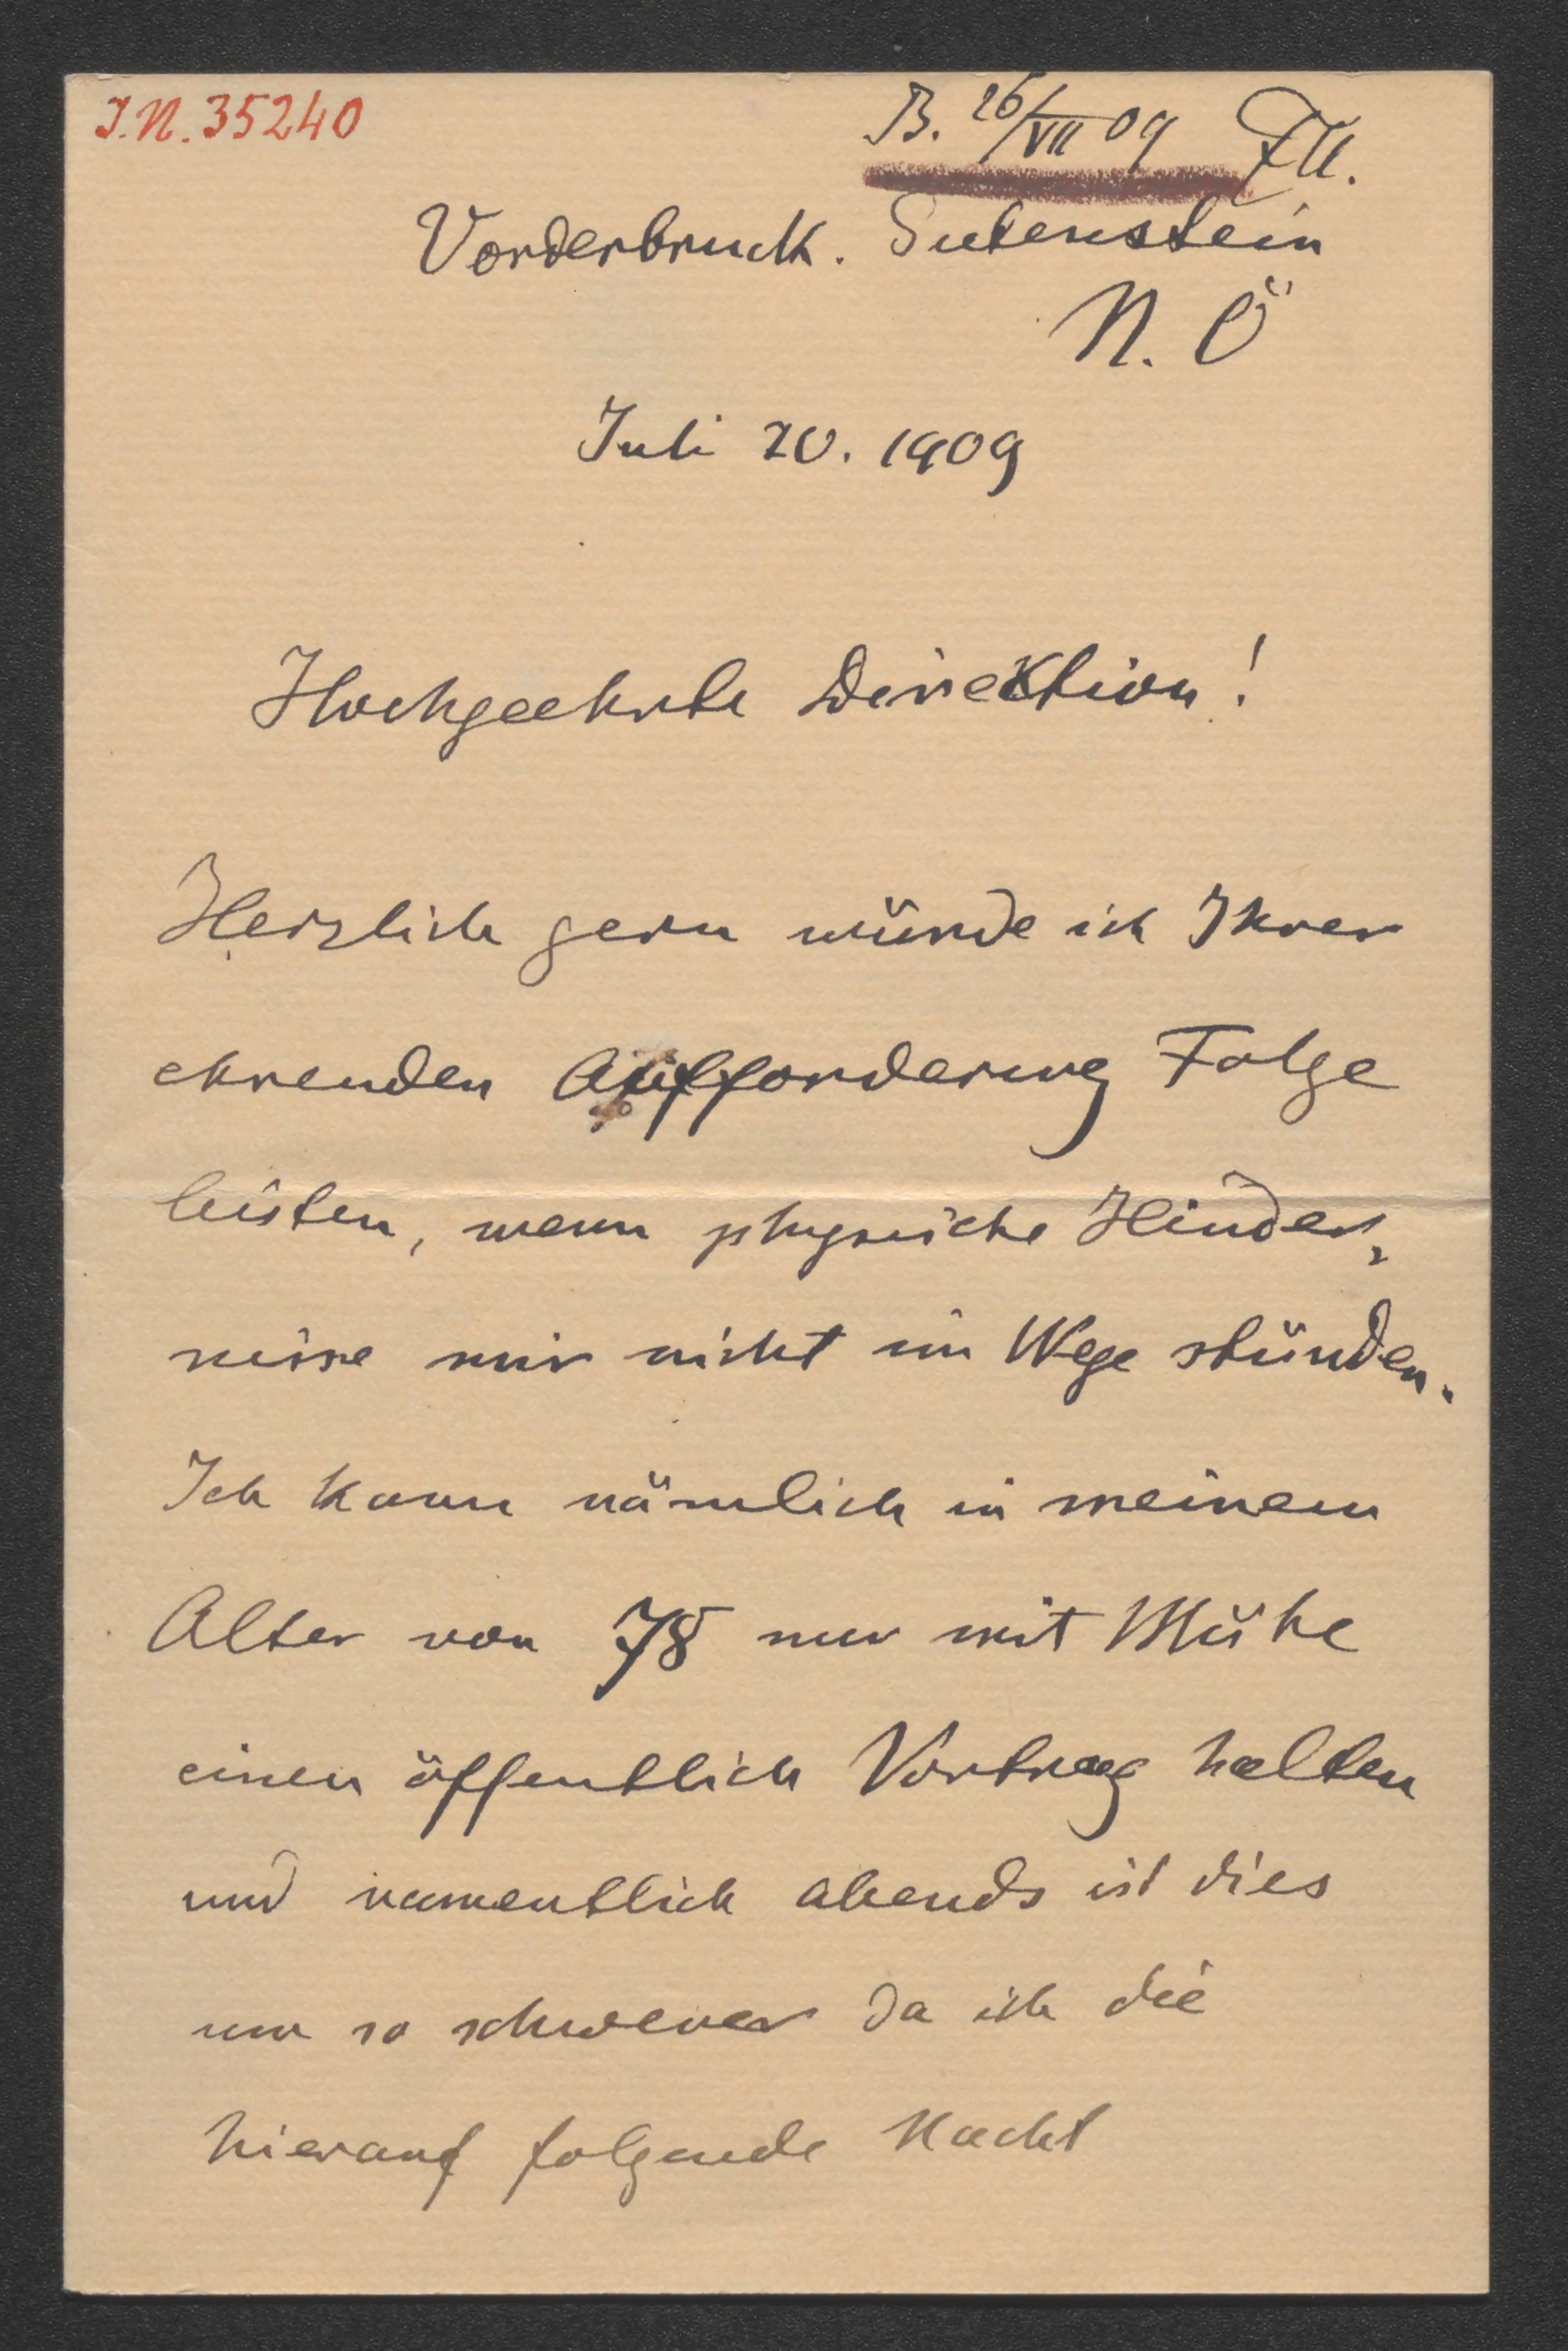 I.N. 35240
B. 26/VII 09
Vorderbruck. Gutenstein
N. Ö
Juli 20. 1909
Hochgeehrte Direktion!
Herzlich gern würde ich Ihrer
ehrenden Aufforderung Folge
leisten, wenn physische Hinder,
nisse mir nicht im Wege stünden.
Ich kann nämlich in meinem
Alter von 78 nur mit Mühe
einen öffentlich Vortrag halten
und namentlich abends ist dies
um so schwerer da ich die
hierauf folgende Nacht